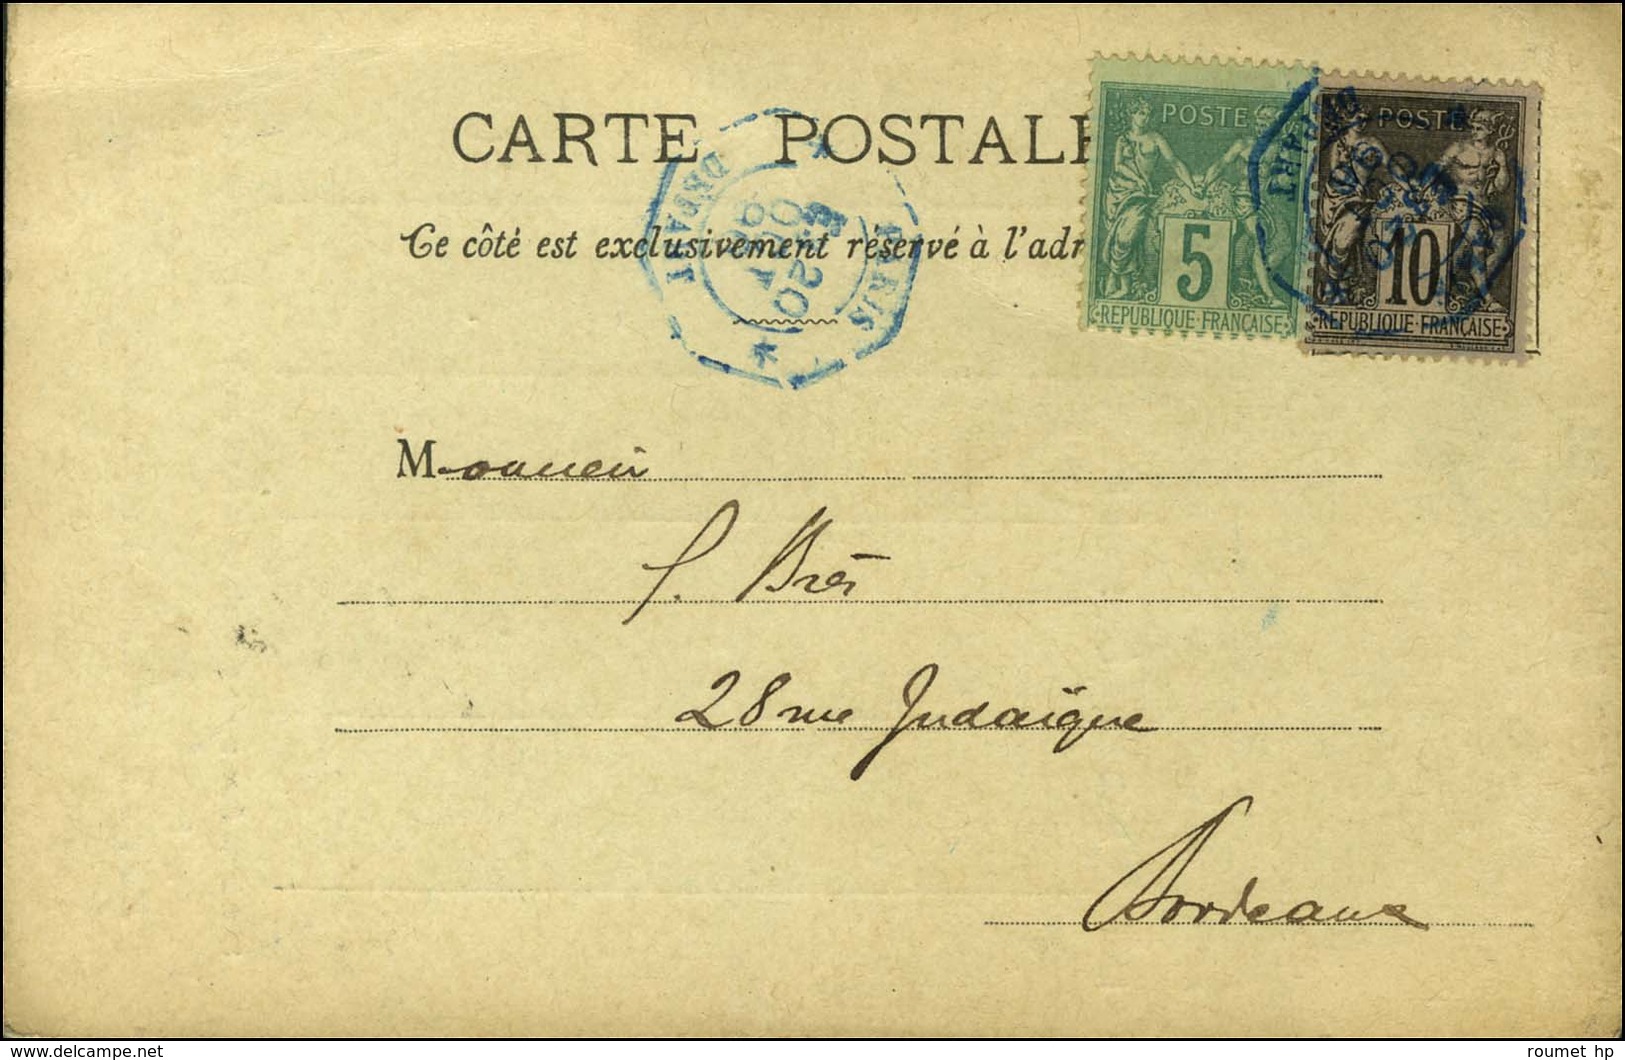 CARTE POSTALE
Ce côté est exclusivement réservé à l'adr
POSTE
5
REPUBLIQUE · FRANÇAISE
POSTE
10
REPUBLIQUE FRANÇAISE
PARIS
DÉPART
DÉPART
Monsieur
Brès
28 rue Judaïque
Bordeaux
delcampe.net
roumet hp